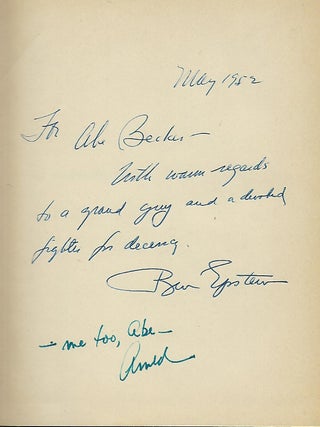 May 1952
For Abe Becker —
With warm regards
to a grand guy and a devoted
fighter for decency.
Ben Epstein
— me too, Abe —
Arnold